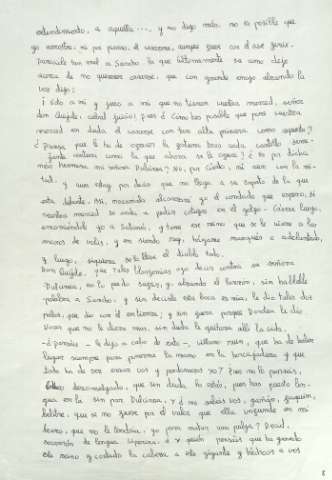 entendimiento, a aquella ..., y no digo más, no es posible que
yo arrostre, ni por pienso, el casarme, aunque fuese con el ave fenix.
Parecióle tan mal a Sancho lo que últimamente su amo dijo
acerca de no querer casarse, que con grande enojo alzando la
voz dijo:
¡ Voto a mí y juro a mí que no tiene vuestra merced, señor
don Quijote, cabal juicio! Pues ¿ Cómo es posible que pone vuestra
merced en duda el casarse con tan alta princesa como aquesta?
¿ Piensa que le ha de ofrecer la fortuna tras cada cantillo
ventura como la que ahora se le ofrece? ¿ Es por dicha
más hermosa mi señora Dulcinea? No, por cierto, ni aun con la mi-
tad, y aun estoy por decir que no llega a su zapato de la que
está delante. Así, noramala alcanzaré yo el condado que espero, si
vuestra merced se anda a pedir cotufas en el golfo. Cásese luego,
encomiéndole yo a Satanás, y tome ese reino que se le viene a las
manos de vobis, y en siendo rey, hágame marqués o adelantado,
y luego, siquiera se lo lleve el diablo todo.
Don Quijote, que tales blasfemias oyó decir contra su señora
Dulcinea, no lo pudo sufrir, y alzando el lanzón, sin hablalle
palabra a Sancho, y sin decirle esta boca es mía, le dio tales dos
palos, que dio con él en tierra; y sin que porque Dorotea le dio
voces que no le diera más, sin duda le quitara allí la vida.
-¿ Pensáis - le dijo a cabo de rato -, villano ruin, que ha de haber
lugar siempre para ponerme la mano en la horcajadura y que
todo ha de ser errar vos y perdonaros yo? Pues no lo penséis,
descomulgado, que sin duda lo estás, pues has puesto len-
gua en la sin par Dulcinea, ¿ Y no sabéis vos, gañán, faquín,
belitre, que si no fuese por el valor que ella infunde en mi
brazo, que no le tendría yo para matar una pulga? Decid,
socarrón de lengua viperina, ¿ y quién pensáis que ha ganado
este reino y cortado la cabeza a este gigante y héchoos a vos